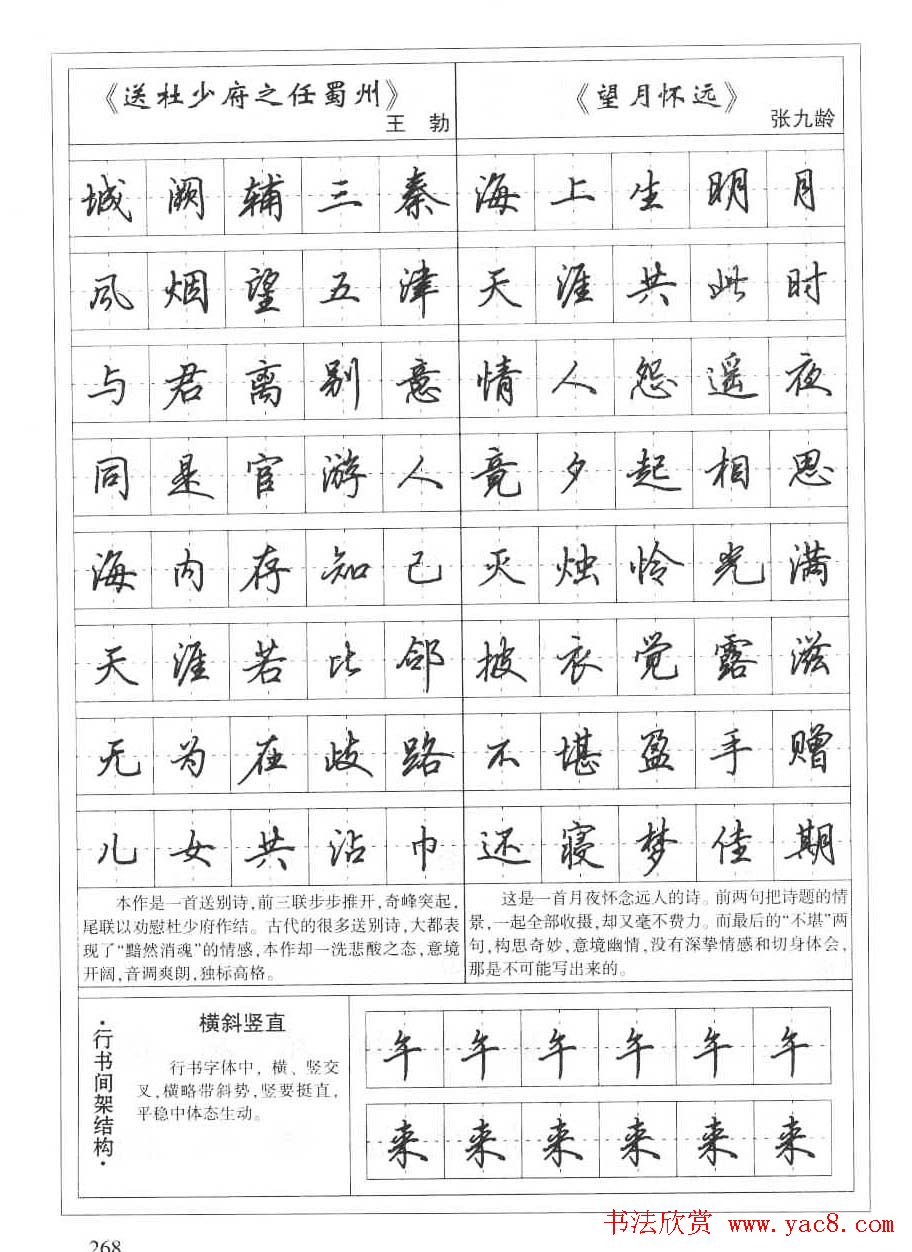 《送杜少府之任蜀州》
王 勃
城阙辅三秦
风烟望五津
与君离别意
同是宦游人
海内存知己
天涯若比邻
无为在歧路
儿女共沾巾
本作是一首送别诗，前三联步步推开，奇峰突起，
尾联以劝慰杜少府作结。古代的很多送别诗，大都表
现了“黯然消魂”的情感，本作却一洗悲酸之态，意境
开阔，音调爽朗，独标高格。
《望月怀远》
张九龄
海上生明月
天涯共此时
情人怨遥夜
竟夕起相思
灭烛怜光满
披衣觉露滋
不堪盈手赠
还寝梦佳期
这是一首月夜怀念远人的诗。前两句把诗题的情
景，一起全部收摄，却又毫不费力。而最后的“不堪”两
句，构思奇妙，意境幽情，没有深挚情感和切身体会，
那是不可能写出来的。
·行书间架结构·
横斜竖直
行书字体中，横、竖交
叉，横略带斜势，竖要挺直，
平稳中体态生动。
午午午午午午
来来来来来来
书法欣赏 www.yac8.com
268